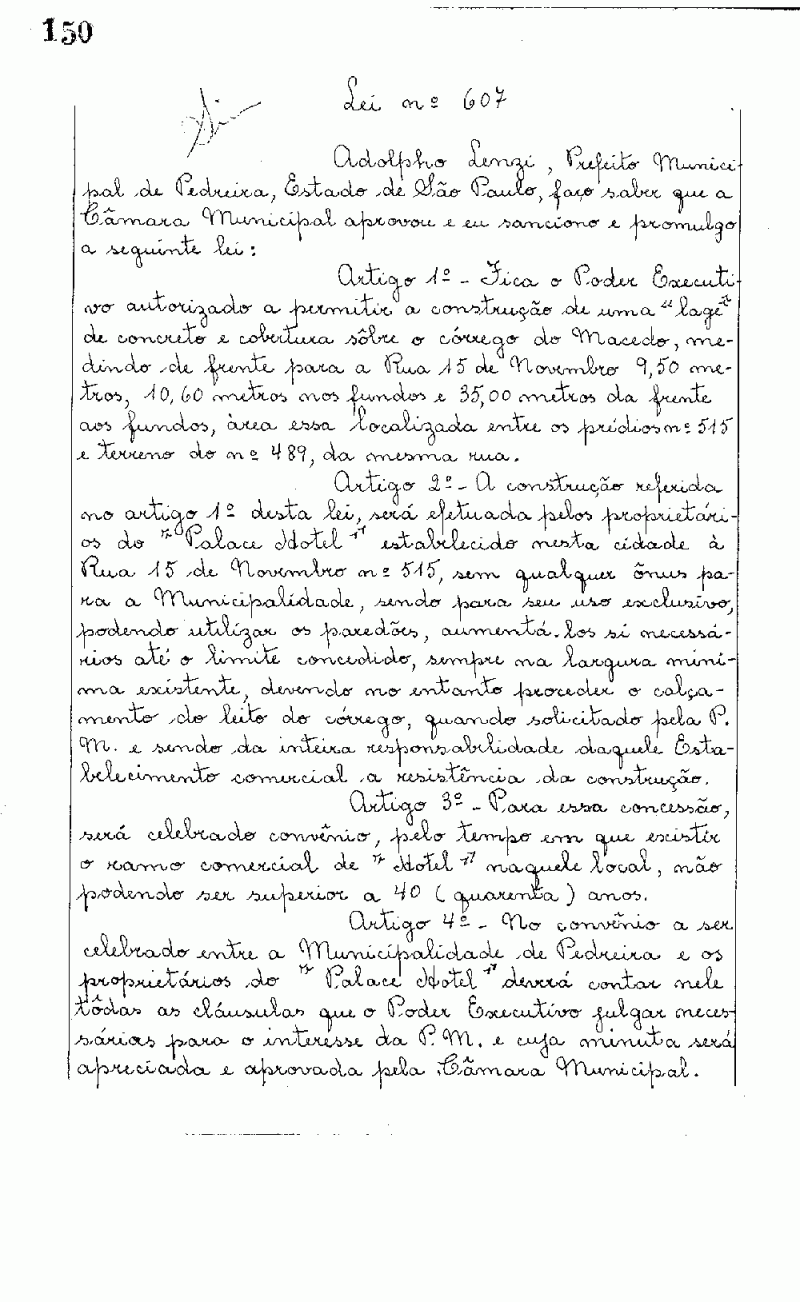 150
Lei nº 607
Adolpho Lenzi, Prefeito Munici-
pal de Pedreira, Estado de São Paulo, faço saber que a
Câmara Municipal aprovou e eu sanciono e promulgo
a seguinte lei:
Artigo 1º - Fica o Poder Executi-
vo autorizado a permitir a construção de uma "lage"
de concreto e cobertura sôbre o córrego do Macedo, me-
dindo de frente para a Rua 15 de Novembro 9,50 me-
tros, 10,60 metros nos fundos e 35,00 metros da frente
aos fundos, àrea essa localizada entre os prédios nº 515
e terreno do nº 489, da mesma rua.
Artigo 2º - A construção referida
no artigo 1º desta lei, será efetuada pelos proprietári-
os do "Palace Hotel" estabelecido nesta cidade à
Rua 15 de Novembro nº 515, sem qualquer ônus pa-
ra a Municipalidade, sendo para seu uso exclusivo,
podendo utilizar os paredões, aumentá-los si necessá-
rios até o limite concedido, sempre na largura mini-
ma existente, devendo no entanto proceder o calça-
mento do leito do córrego, quando solicitado pela P.
M. e sendo da inteira responsabilidade daquele Esta-
belecimento comercial a resistência da construção.
Artigo 3º - Para essa concessão,
será celebrado convênio, pelo tempo em que existir
o ramo comercial de "Hotel" naquele local, não
podendo ser superior a 40 (quarenta) anos.
Artigo 4º - No convênio a ser
celebrado entre a Municipalidade de Pedreira e os
proprietários do "Palace Hotel" deverá contar nele
tôdas as cláusulas que o Poder Executivo julgar neces-
sárias para o interesse da P.M. e cuja minuta será
apreciada e aprovada pela Câmara Municipal.